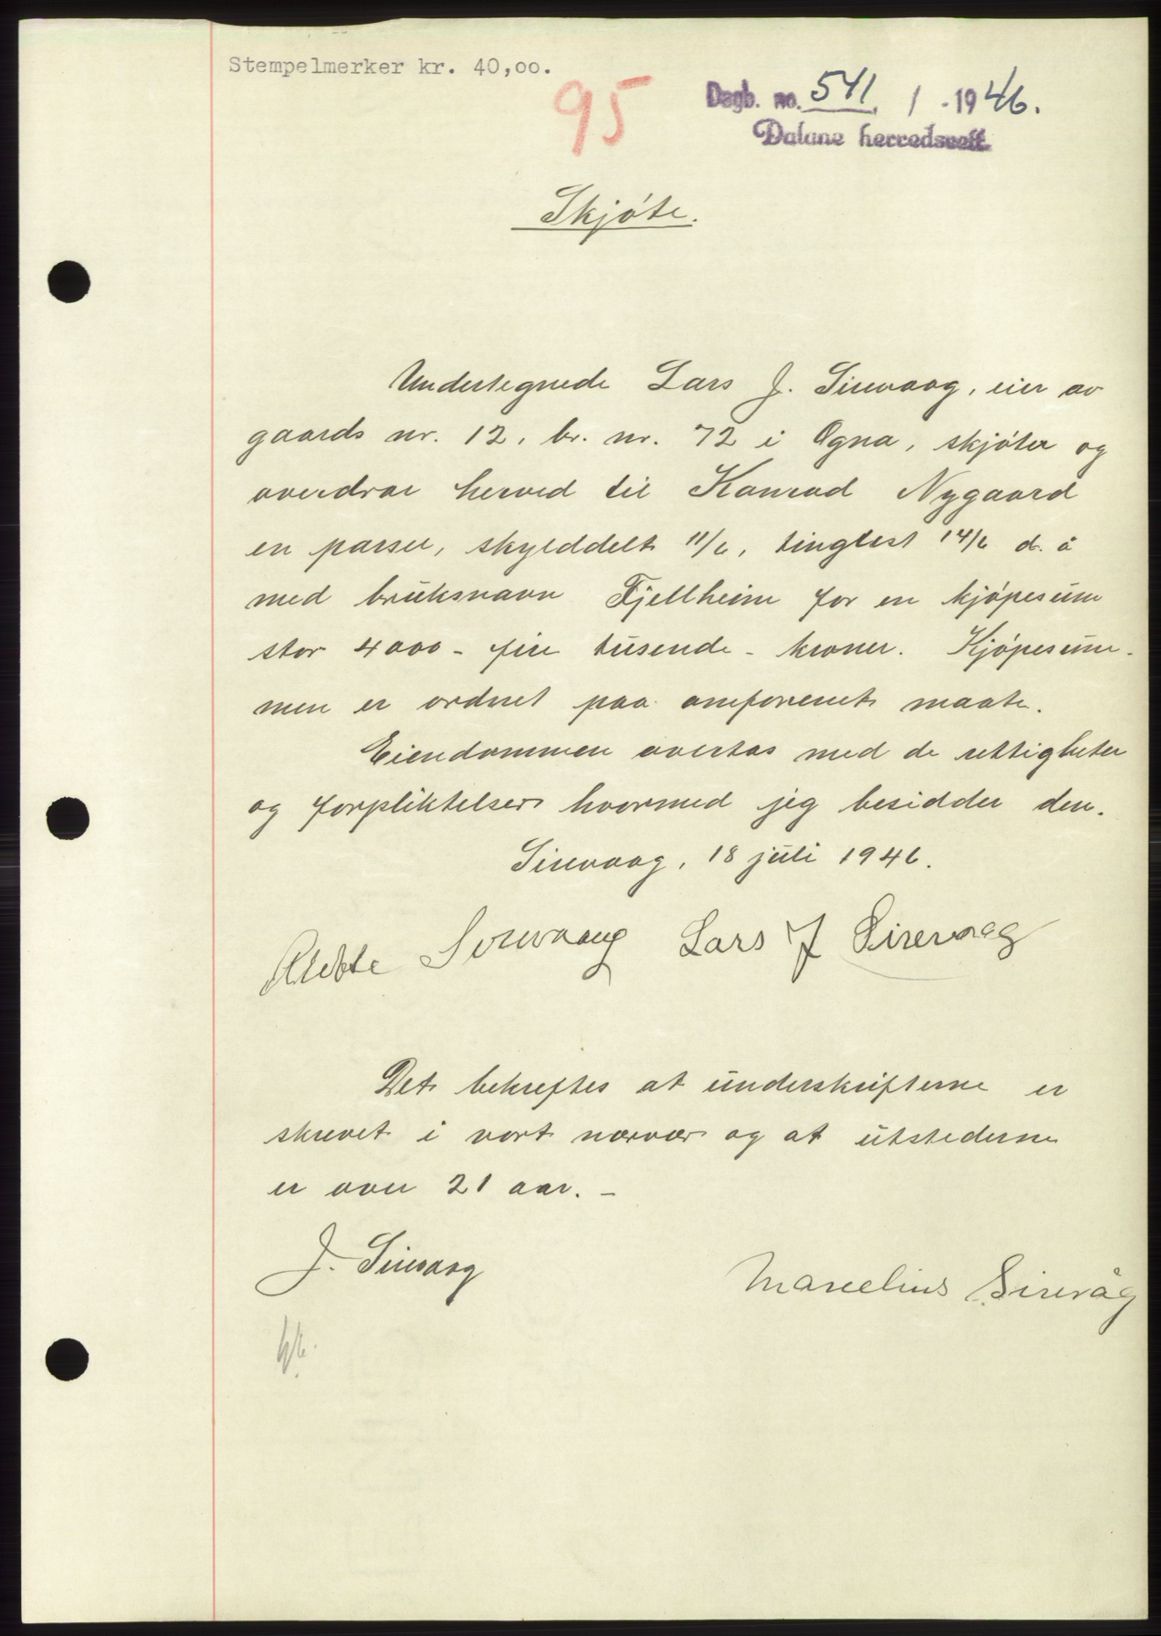 Stempelmerker kr. 40,oo.
95
Dagb. no. 541 / - 1946.
Dalane herredsrett
Skjøte.
Undertegnede Lars J. Sirevaag, eier av
gaards nr. 12, br. nr. 72 i Ogna, skjøter og
overdrar herved til Konrad Nygaard
en parsel, skylddelt 11/6, tinglest 14/6 d. å
med bruksnavn Fjellheim for en kjøpesum
stor 4000 - fire tusende - kroner. Kjøpesum-
men er ordnet paa omforenet maate.
Eiendommen overtas med de rettigheter
og forpliktelser hvormed jeg besidder den.
Sirevaag, 18 juli 1946.
Sirevaag Lars J Sirevaag
Det bekreftes at underskrifterne er
skrevet i vort nærvær og at utstederne
er over 21 aar. -
J. Sirevaag
Marcelius Sirevåg